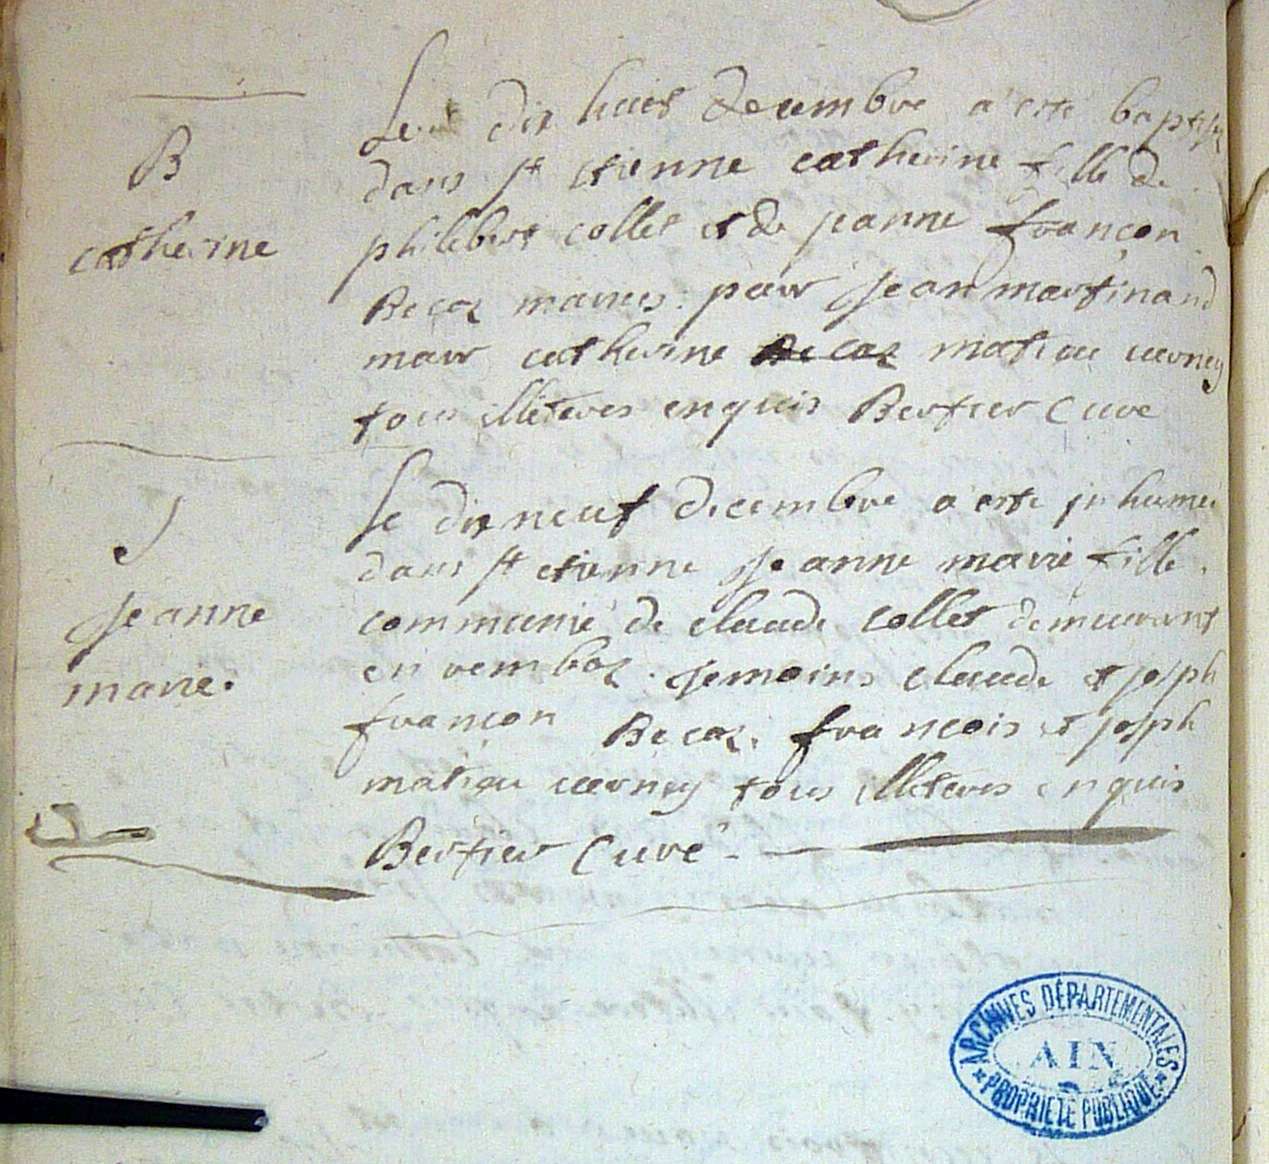 B
catherine
Le dix huict decembre a este baptisé
dans st etienne catherine fille de
philibert collet et de jeanne françon
Becaz maries. parr jean martinand
marr catherine Becaz matieu verney
tous illiteres enquis Bertier Curé
J
jeanne
marie.
le dixneuf decembre a este jnhumée
dans st etienne jeanne marie fille
communié de claude collet demeurant
en remboz. temoins claude et joseph
françon Becaz. françois et joseph
matieu verney tous illiteres enquis
Bertier Curé
ARCHIVES DÉPARTEMENTALES
AIN
* PROPRIÉTÉ PUBLIQUE *